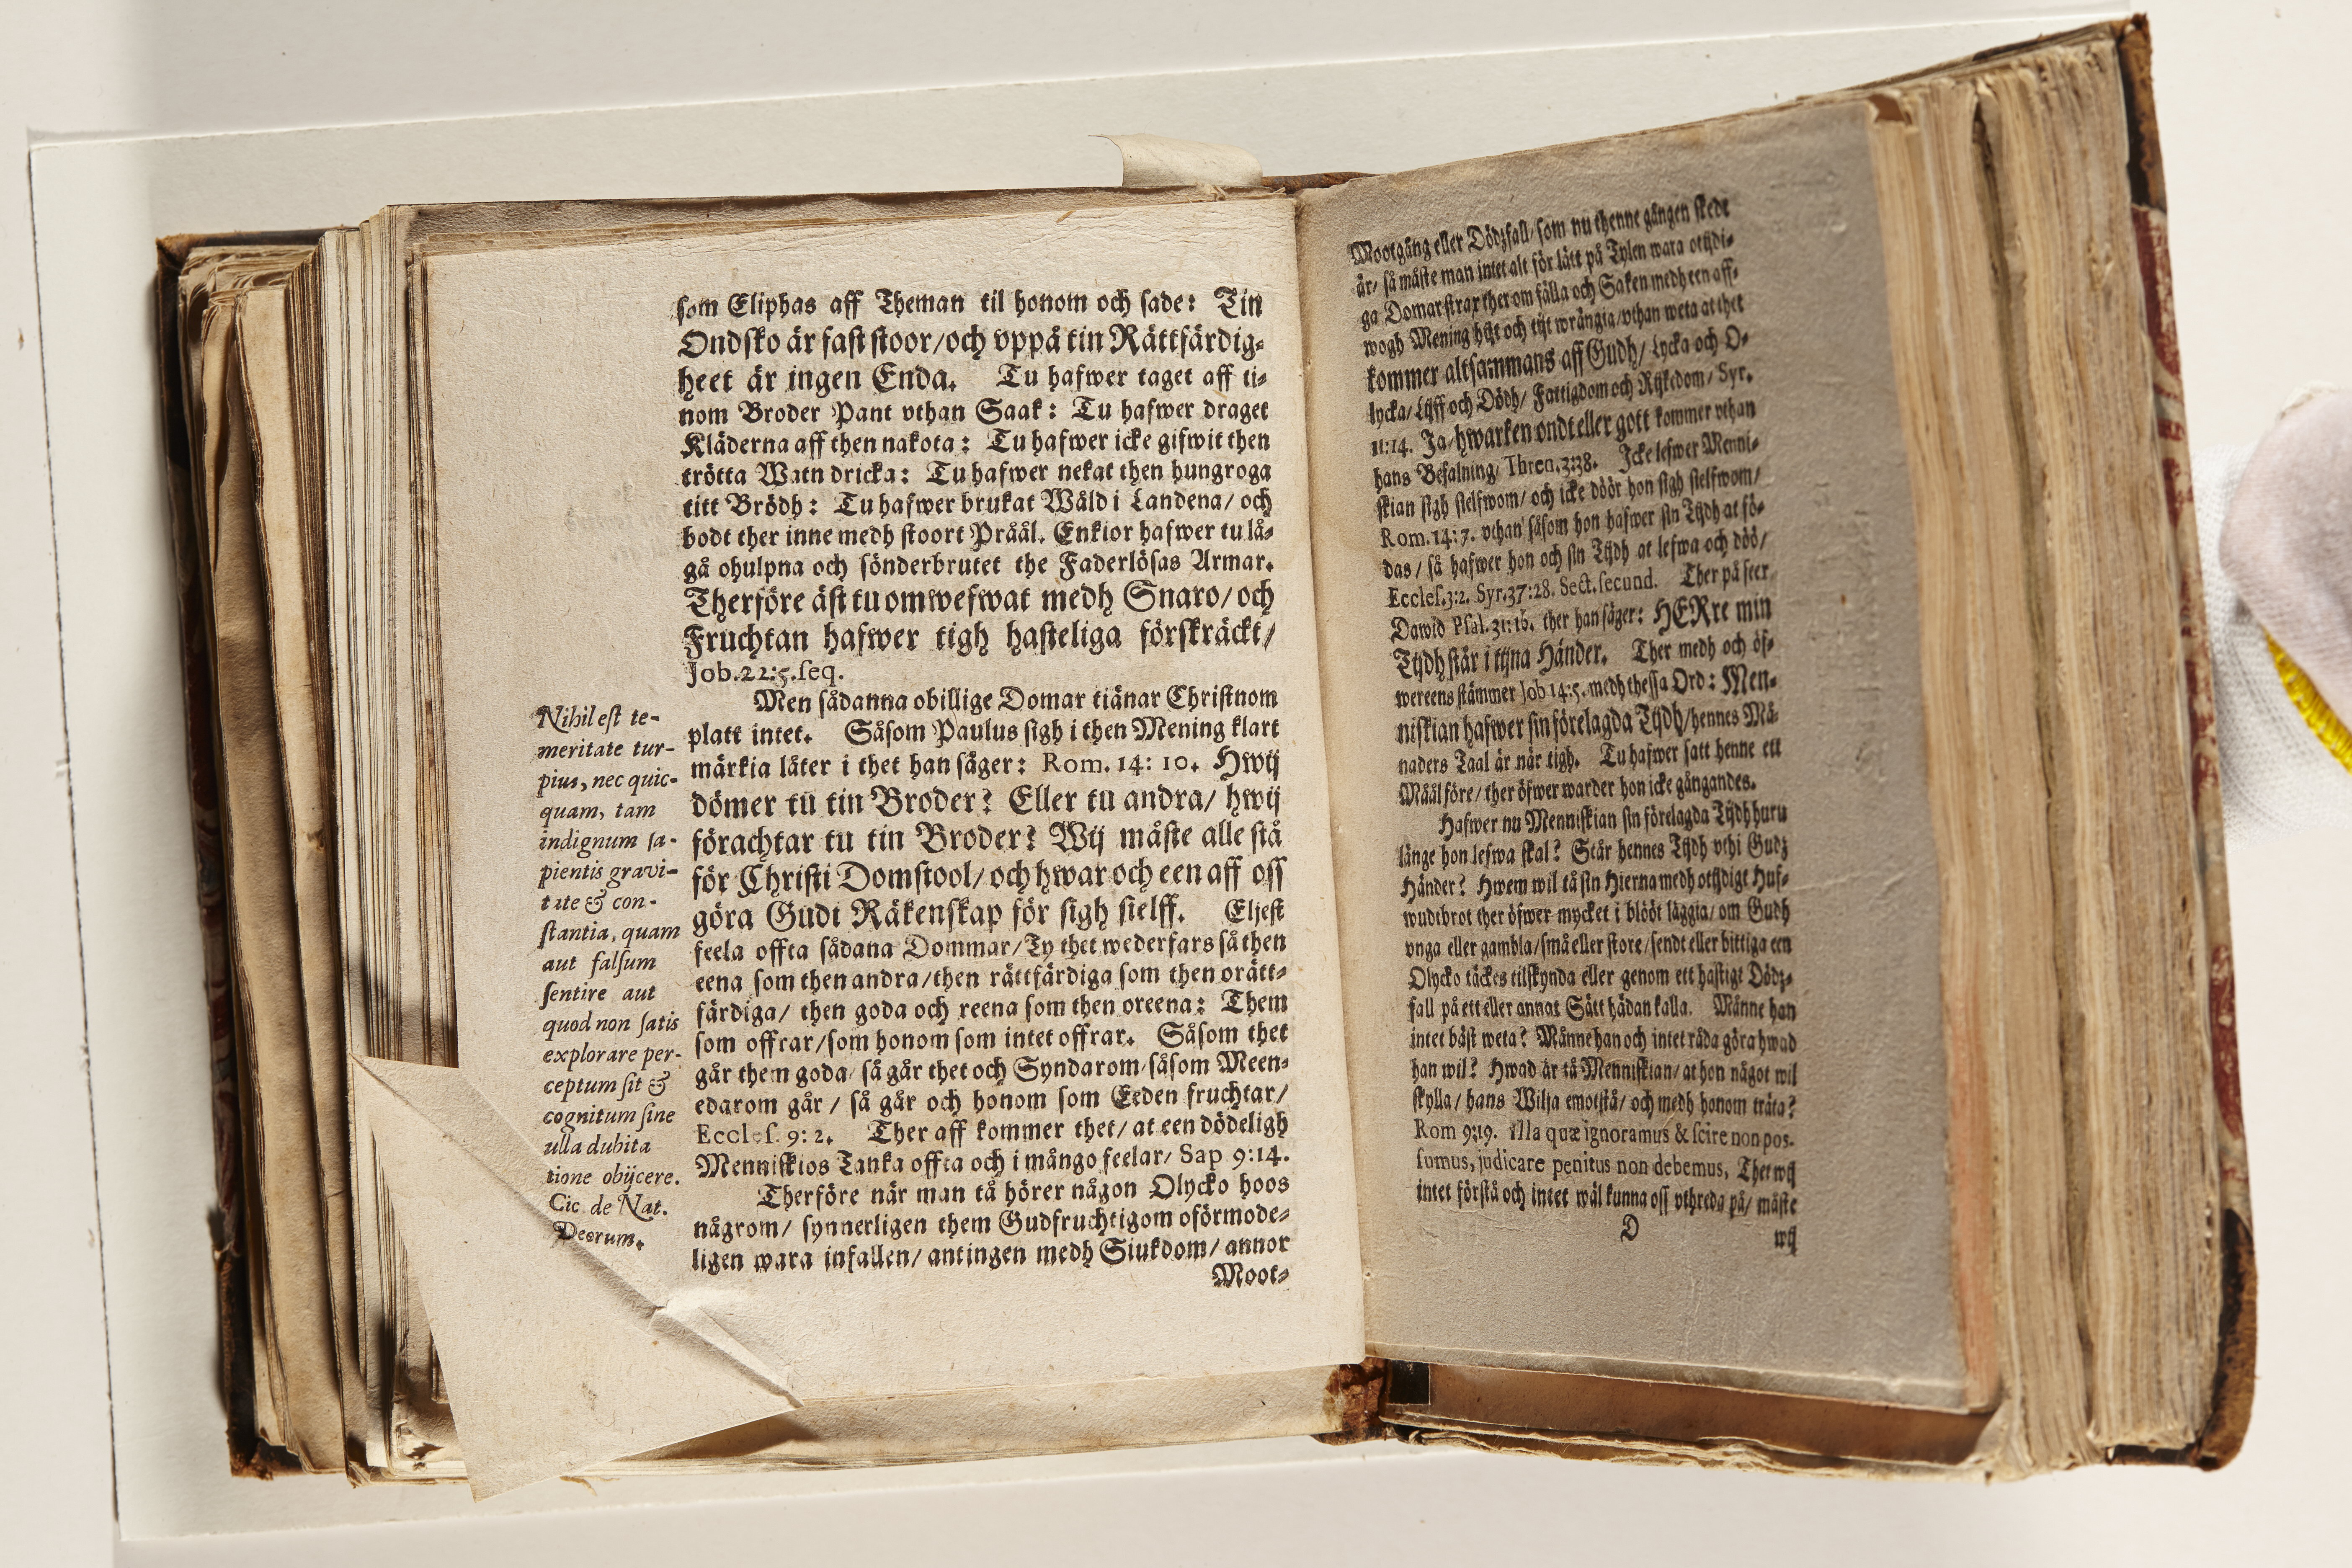 som Eliphas aff Theman til honom och sade: Tin
Ondsko är fast stoor/och vppå tin Rättfärdig-
heet är ingen Enda. Tu hafwer taget aff ti-
nom Broder Pant vthan Saak: Tu hafwer draget
Kläderna aff then nakota: Tu hafwer icke gifwit then
trötta Watn dricka: Tu hafwer nekat then hungroga
titt Brödh: Tu hafwer brukat Wåld i Landena/ och
bodt ther inne medh stoort Pråål. Enkior hafwer tu lå-
gå ohulpna och sönderbrutet the Faderlösas Armar.
Therföre äst tu omwefwat medh Snaro/ och
Fruchtan hafwer tigh hasteliga förskräckt/
Job.22:5.seq.
Men sådanna obillige Domar tiänar Christnom
platt intet. Såsom Paulus sigh i then Mening klart
märkia låter i thet han säger: Rom. 14: 10. Hwij
dömer tu tin Broder? Eller tu andra/ hwij
förachtar tu tin Broder? Wij måste alle stå
för Christi Domstool/ och hwar och een aff oss
göra Gudi Räkenskap för sigh sielff. Eljest
feela offta sådana Dommar/Ty thet wederfars så then
eena som then andra/then rättfärdiga som then orätt-
färdiga/ then goda och reena som then oreena: Them
som offrar/som honom som intet offrar. Såsom thet
går them goda/ så går thet och Syndarom/såsom Meen-
edarom går/ så går och honom som Eeden fruchtar/
Eccles. 9: 2. Ther aff kommer thet/ at een dödeligh
Menniskios Tanka offta och i mångo feelar/ Sap 9:14.
Therföre när man tå hörer någon Olycko hoos
någrom/ synnerligen them Gudfruchtigom oförmode-
ligen wara infallen/ antingen medh Siukdom/ annor
Moot-
Nihil est te-
meritate tur-
pius, nec quic-
quam, tam
indignum sa-
pientis gravi-
tate & con-
stantia, quam
aut falsum
sentire aut
quod non satis
explorare per-
ceptum sit &
cognitum sine
ulla dubita
tione obijcere.
Cic de Nat.
Deorum.
Mootgång eller Dödzfall/ som nu thenne gången skedt
är/ så måste man intet alt för lätt på Tylen wara otijdi-
ga Domar strax ther om fälla och Saken medh een aff-
wogh Mening hijt och tijt wrängia/vthan weta at thet
kommer altsammans aff Gudh/ Lycka och O-
lycka/ Lijff och Dödh/ Fattigdom och Rijkedom/ Syr.
11:14. Ja/ hwarken ondt eller gott kommer vthan
hans Befalning/ Thren. 3:38. Icke lefwer Menni-
skian sigh sielfwom/ och icke döör hon sigh sielfwom/
Rom. 14: 7. vthan såsom hon hafwer sin Tijdh at fö-
das/ så hafwer hon och sin Tijdh at lefwa och döö/
Eccles.3:2. Syr.37:28. Sect. secund. Ther på seer
Dawid Psal. 31: 16. ther han säger: HERre min
Tijdh står i tijna Händer. Ther medh och öf-
wereens stämmer Job 14:5. medh thessa Ord: Men-
niskian hafwer sin förelagda Tijdh/hennes Må-
naders Taal är när tigh. Tu hafwer satt henne ett
Måål före/ ther öfwer warder hon icke gångandes.
Hafwer nu Menniskian sin förelagda Tijdh huru
länge hon lefwa skal? Står hennes Tijdh vthi Gudz
Händer? Hwem wil tå sin Hierna medh otijdigt Huf-
wudtbrot ther öfwer mycket i blööt läggia/ om Gudh
vnga eller gambla/små eller store/sendt eller bittiga een
Olycko täckes tilskynda eller genom ett hastigt Dödz-
fall på ett eller annat Sätt hädan kalla. Månne han
intet bäst weta? Månne han och intet råda göra hwad
han wil? Hwad är tå Menniskian/ at hon något wil
skylla/ hans Wilja emotstå/ och medh honom träta?
Rom 9:19. Illa quæ ignoramus & scire non pos-
sumus, judicare penitus non debemus, Thet wij
intet förstå och intet wäl kunna oss vthreda på/ måste
D wij